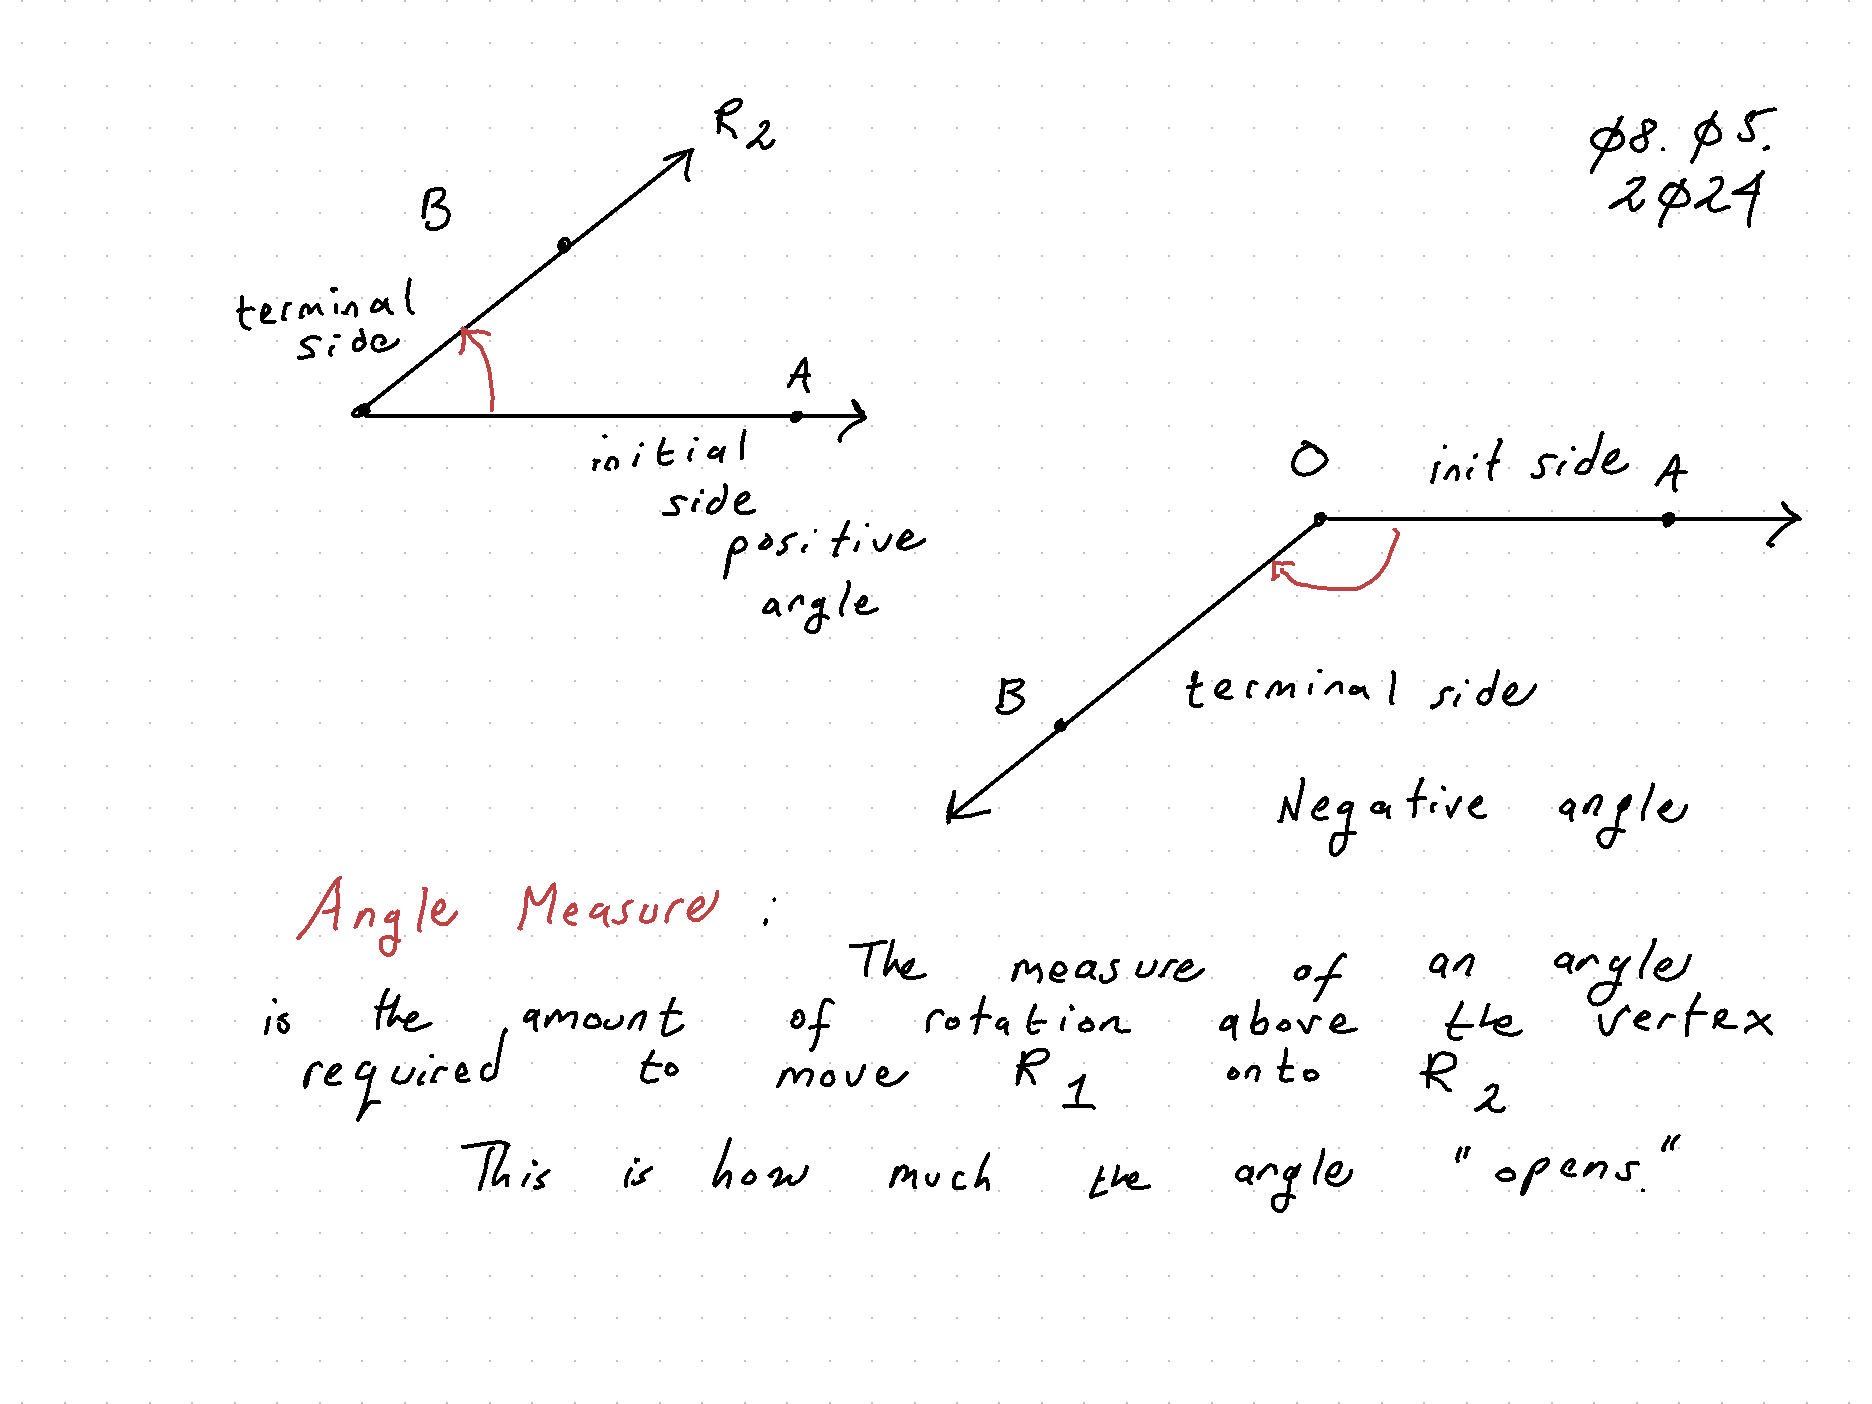 R2
ø8. ø5.
2ø24
B
terminal
side
A
initial
side
positive
angle
O init side A
B
terminal side
Negative angle
Angle Measure :
The measure of an angle
is the amount of rotation above the vertex
required to move R1 onto R2
This is how much the angle "opens."